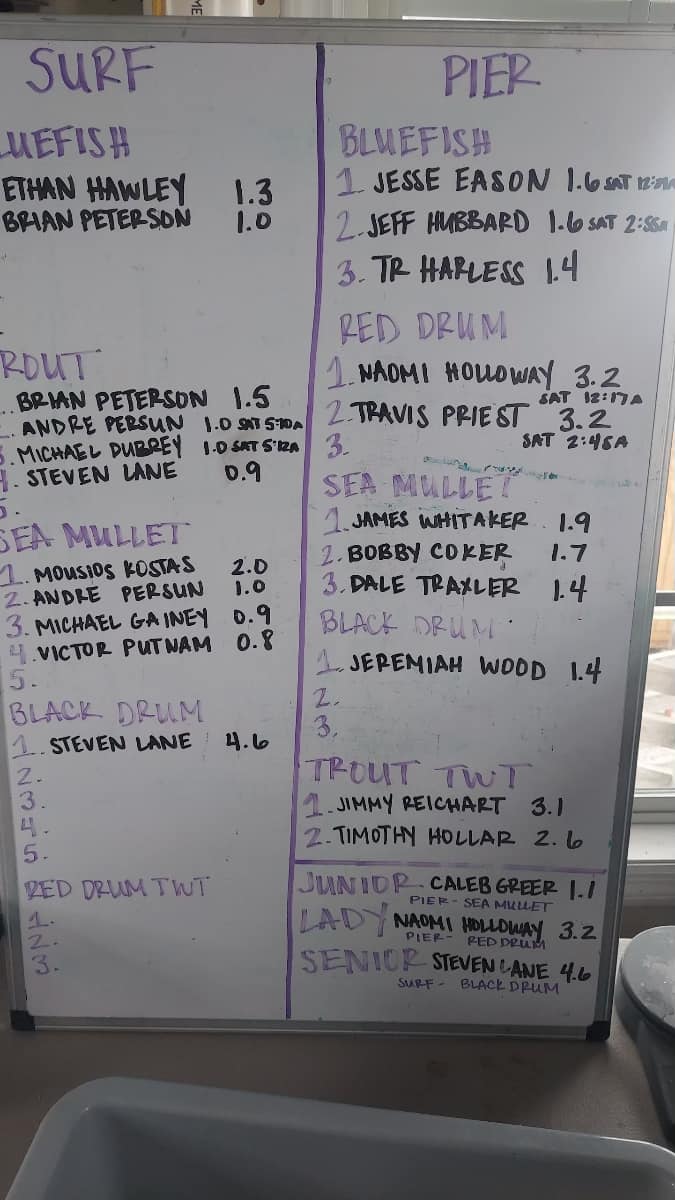 SURF
LUEFISH
ETHAN HAWLEY 1.3
BRIAN PETERSON 1.0
ROUT
BRIAN PETERSON 1.5
ANDRE PERSUN 1.0 SAT 5:10A
3. MICHAEL DUBREY 1.0 SAT 5:12A
4. STEVEN LANE 0.9
5.
SEA MULLET
1. MOUSIOS KOSTAS 2.0
2. ANDRE PERSUN 1.0
3. MICHAEL GAINEY 0.9
4. VICTOR PUTNAM 0.8
5.
BLACK DRUM
1. STEVEN LANE 4.6
2.
3.
4.
5.
RED DRUM TWT
1.
2.
3.
PIER
BLUEFISH
1 JESSE EASON 1.6 SAT
2. JEFF HUBBARD 1.6 SAT
3. TR HARLESS 1.4
RED DRUM
1. NAOMI HOLLOWAY 3.2
SAT 12:17A
2. TRAVIS PRIEST 3.2
SAT 2:48A
3.
SEA MULLET
1. JAMES WHITAKER 1.9
2. BOBBY COKER 1.7
3. DALE TRAXLER 1.4
BLACK DRUM
1. JEREMIAH WOOD 1.4
2.
3.
TROUT TWT
1. JIMMY REICHART 3.1
2. TIMOTHY HOLLAR 2.6
JUNIOR - CALEB GREER 1.1
PIER - SEA MULLET
LADY NAOMI HOLLOWAY 3.2
PIER - RED DRUM
SENIOR STEVEN LANE 4.6
SURF - BLACK DRUM